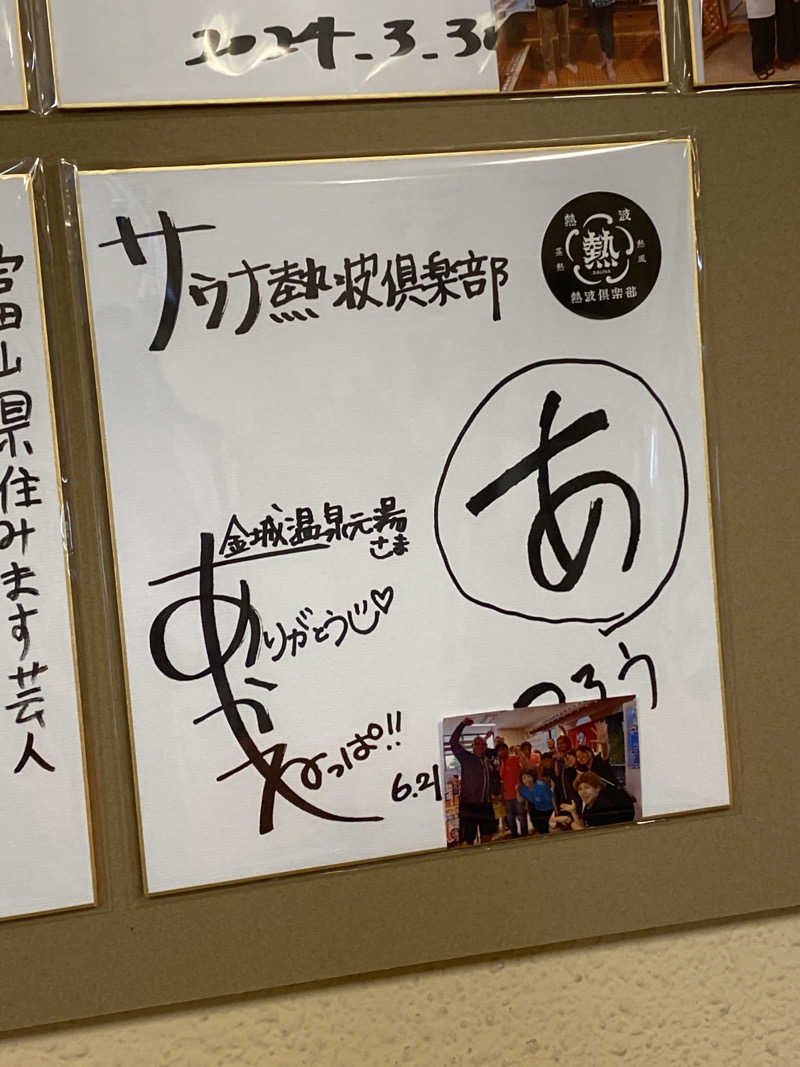 2024.3.30
富山県住みます芸人
サウナ熱波倶楽部
熱波
熱
SAUNA
蒸熱
熱風
熱波倶楽部
あ
つろう
金城温泉元湯
さま
ありがとう♡
ねっぱ!!
6.21